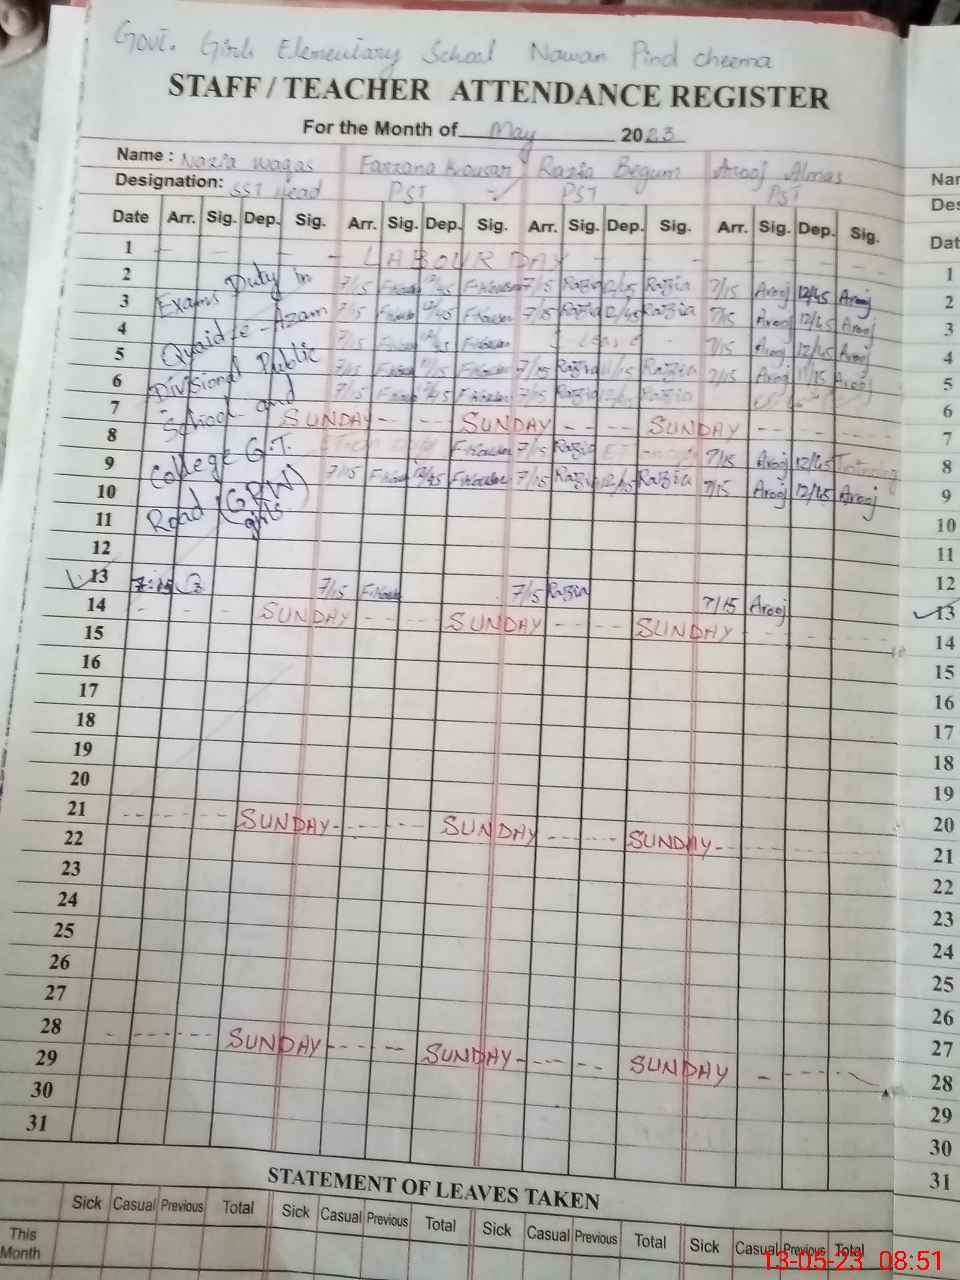 Govt. Girls Elementary School Nawan Pind Cheema
STAFF / TEACHER ATTENDANCE REGISTER
For the Month of May 2023
Name : Nazia Waqas Farzana Kousar Razia Begum Arooj Almas
Designation: SST Head PST PST PST
Date Arr. Sig. Dep. Sig. Arr. Sig. Dep. Sig. Arr. Sig. Dep. Sig. Arr. Sig. Dep. Sig.
1 LABOUR DAY 1
2 Exams Duty in 7/15 12/45 F.Kousar 7/15 Razia 12/45 Razia 7/15 Arooj 12/45 Arooj 2
3 Quaid-e-Azam 7/15 12/45 F.Kousar 7/15 Razia 12/45 Razia 7/15 Arooj 12/45 Arooj 3
4 7/15 12/45 F.Kousar Leave 7/15 Arooj 12/45 Arooj 4
5 Divisional Public 7/15 11/15 F.Kousar 7/15 Razia 11/15 Razia 7/15 Arooj 11/15 Arooj 5
6 School and 7/15 12/45 F.Kousar 7/15 Razia 12/45 Razia 6
7 SUNDAY SUNDAY SUNDAY 7
8 College G.T. F.Kousar 7/15 Razia 7/15 Arooj 12/45 Training 8
9 Road (GRW) 7/15 12/45 F.Kousar 7/15 Razia 12/45 Razia 7/15 Arooj 12/45 Arooj 9
10 girls 10
11 11
12 12
13 7:15 7/15 7/15 Razia 7/15 Arooj 13
14 SUNDAY SUNDAY SUNDAY 14
15 15
16 16
17 17
18 18
19 19
20 20
21 SUNDAY SUNDAY SUNDAY 21
22 22
23 23
24 24
25 25
26 26
27 27
28 SUNDAY SUNDAY SUNDAY 28
29 29
30 30
31 31
STATEMENT OF LEAVES TAKEN
Sick Casual Previous Total Sick Casual Previous Total Sick Casual Previous Total Sick Casual Previous Total
This Month
13-05-23 08:51